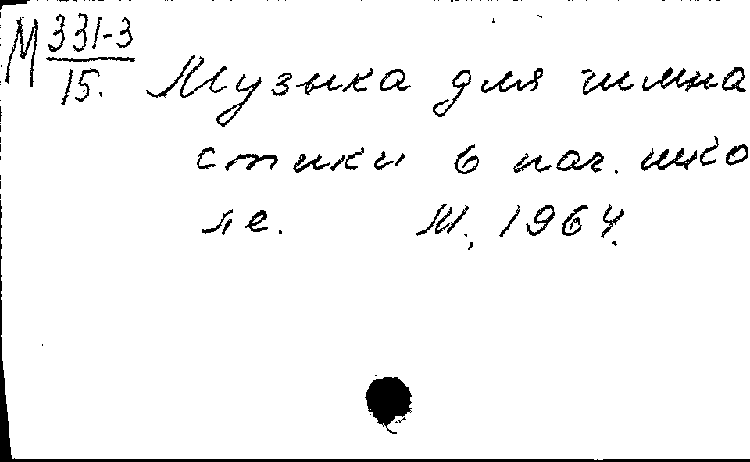 М 331-3
15. Музыка для гимна
стики в нач. шко
ле. М., 1964.